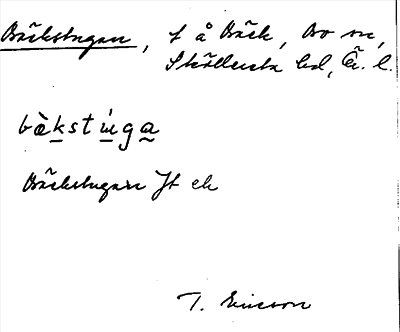 Bäckstugan, t å Bäck, Bo sn,
Skölleersta hd, Ör. l.
bæ̀kstùga
Bäckstugan Jt ek
T. Ericson